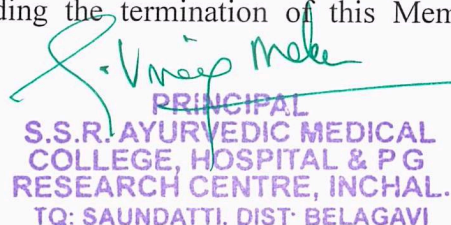 ding the termination of this Mem
PRINCIPAL
S.S.R. AYURVEDIC MEDICAL
COLLEGE, HOSPITAL & P G
RESEARCH CENTRE, INCHAL.
TQ: SAUNDATTI, DIST: BELAGAVI